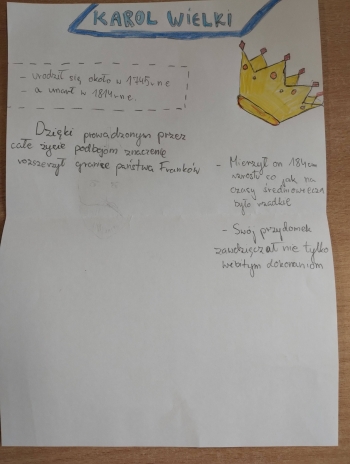 KAROL WIELKI
- urodził się około w 1745r. n.e
- a umarł w 1814r. n.e.
Dzięki prowadzonym przez
całe życie podbojom znacznie
rozszerzył granice państwa Franków
- Mierzył on 184cm
wzrostu co jak na
czasy średniowiecza
było rzadkie
- Swój przydomek
zawdzięczał nie tylko
wybitnym dokonaniom